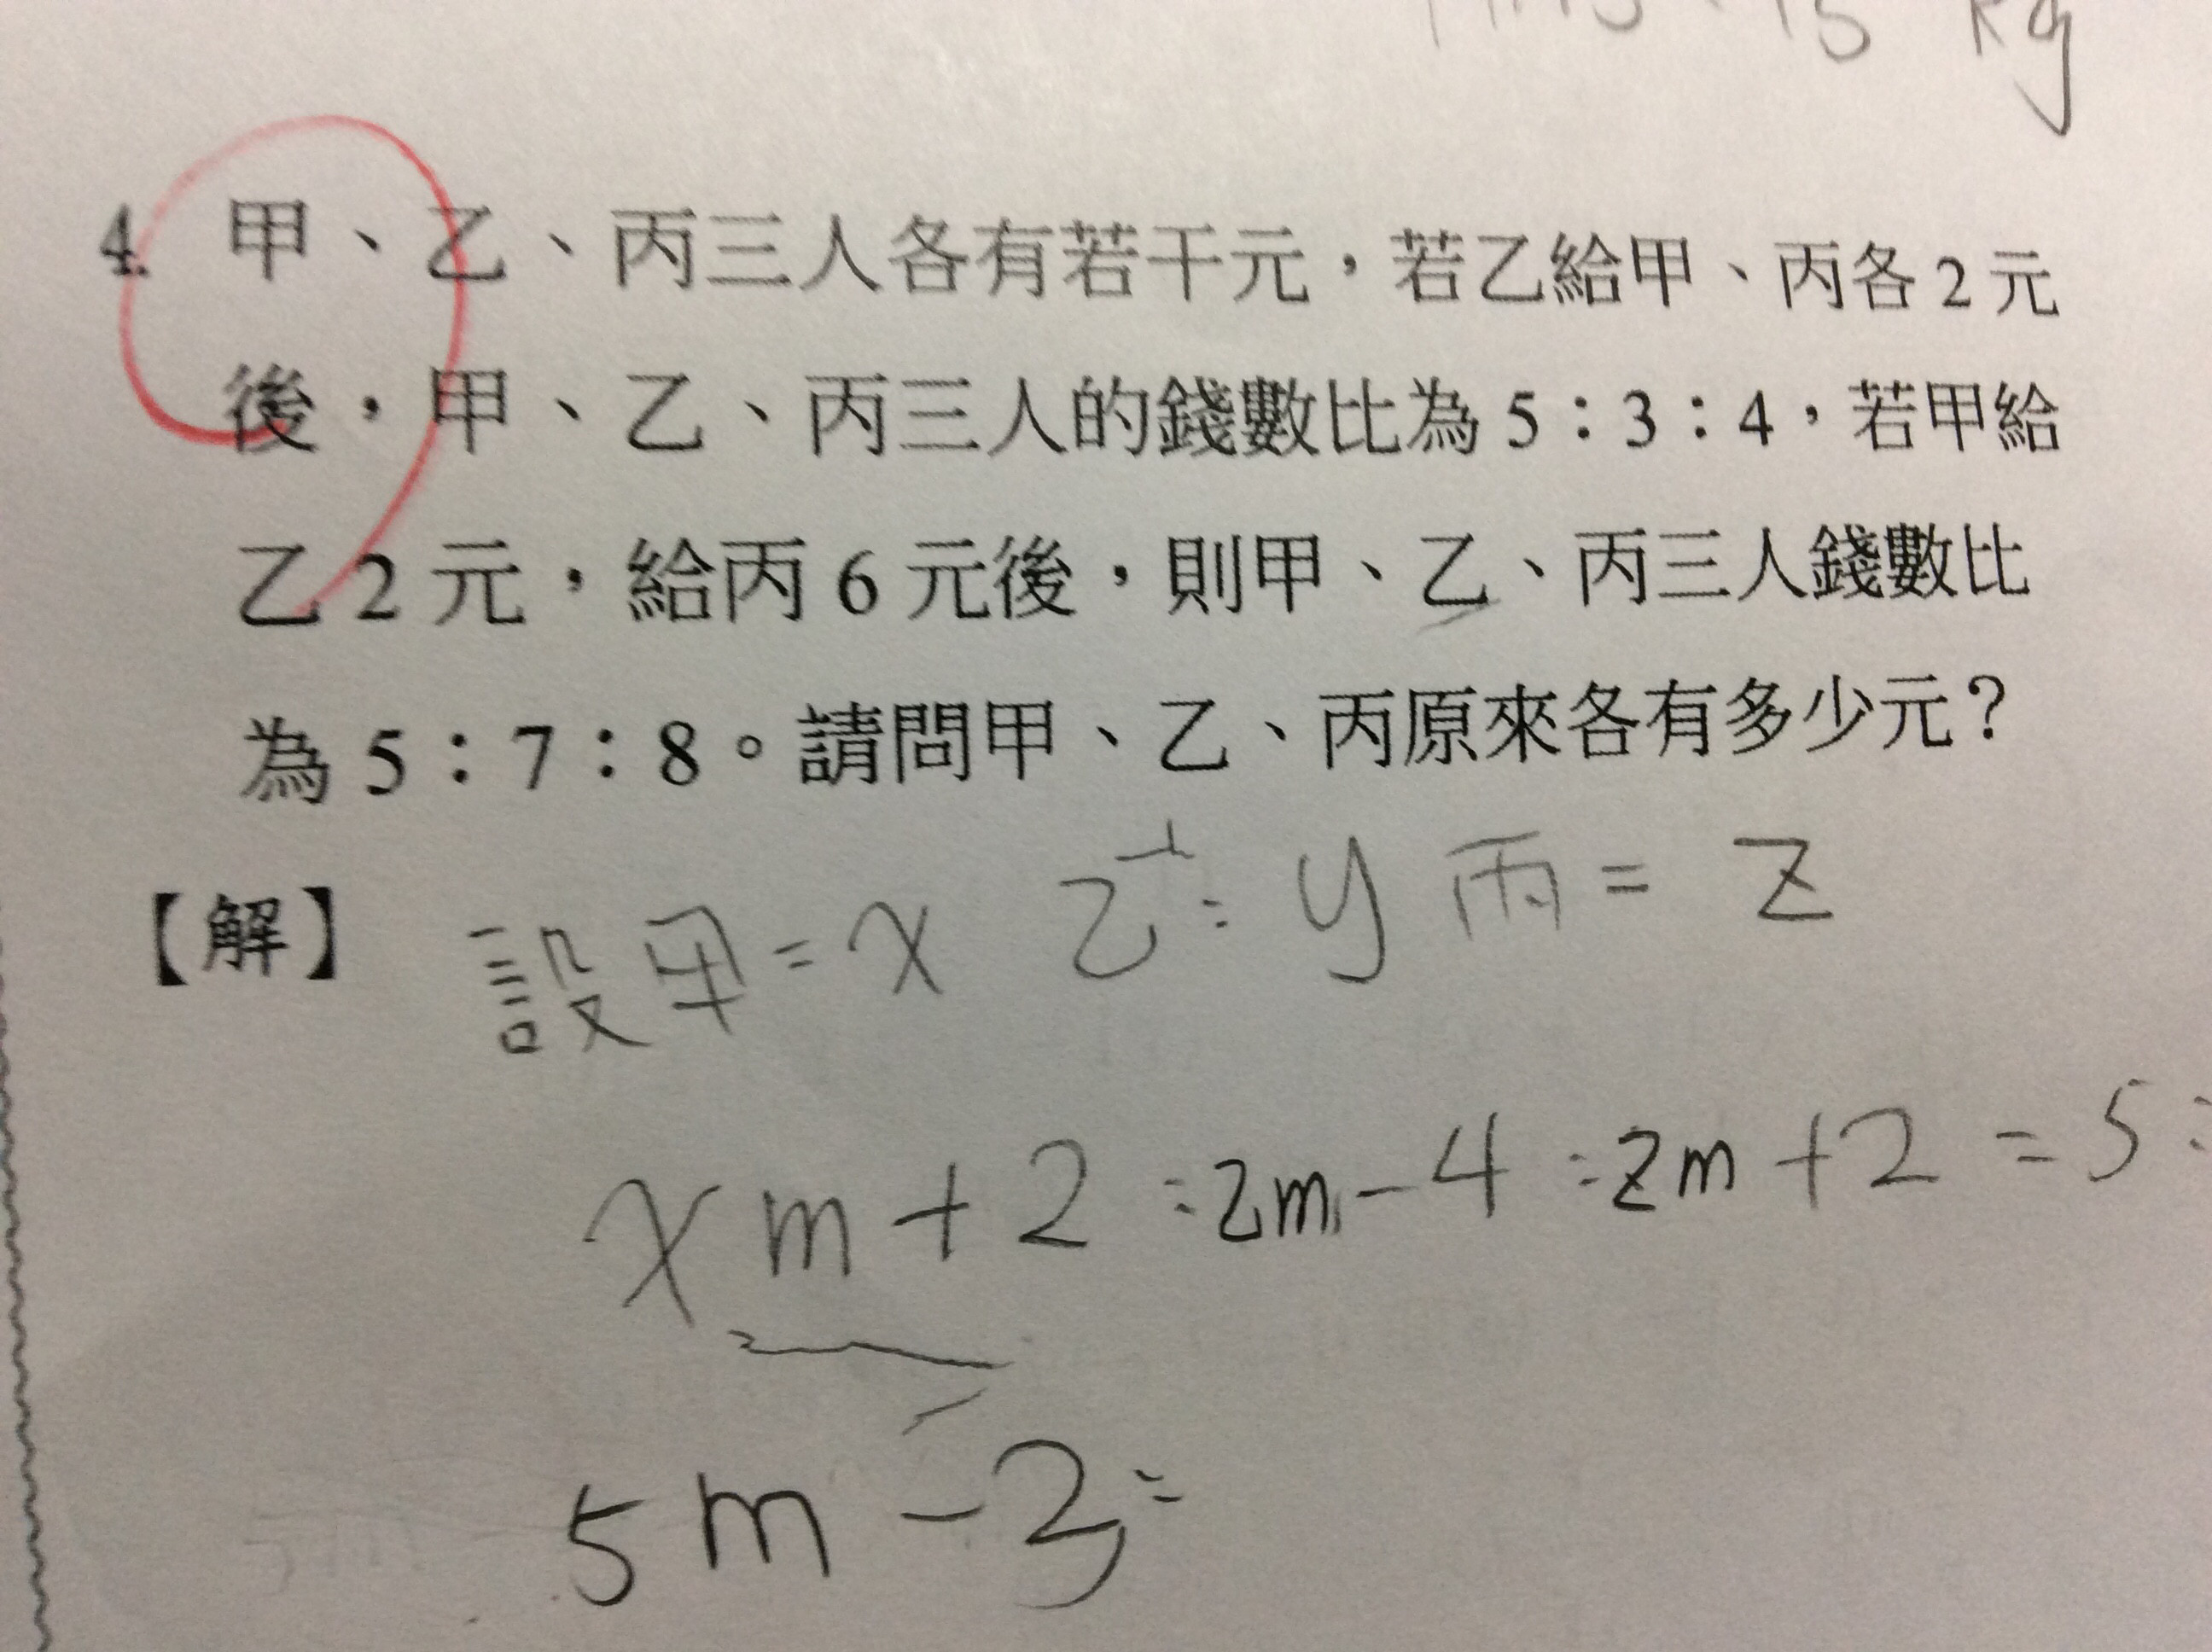 kg
4. 甲、乙、丙三人各有若干元，若乙給甲、丙各2元
後，甲、乙、丙三人的錢數比為5：3：4，若甲給
乙2元，給丙6元後，則甲、乙、丙三人錢數比
為5：7：8。請問甲、乙、丙原來各有多少元？
【解】 設甲=x 乙=y 丙=z
xm+2:2m-4:2m+2=5:
5m-2=